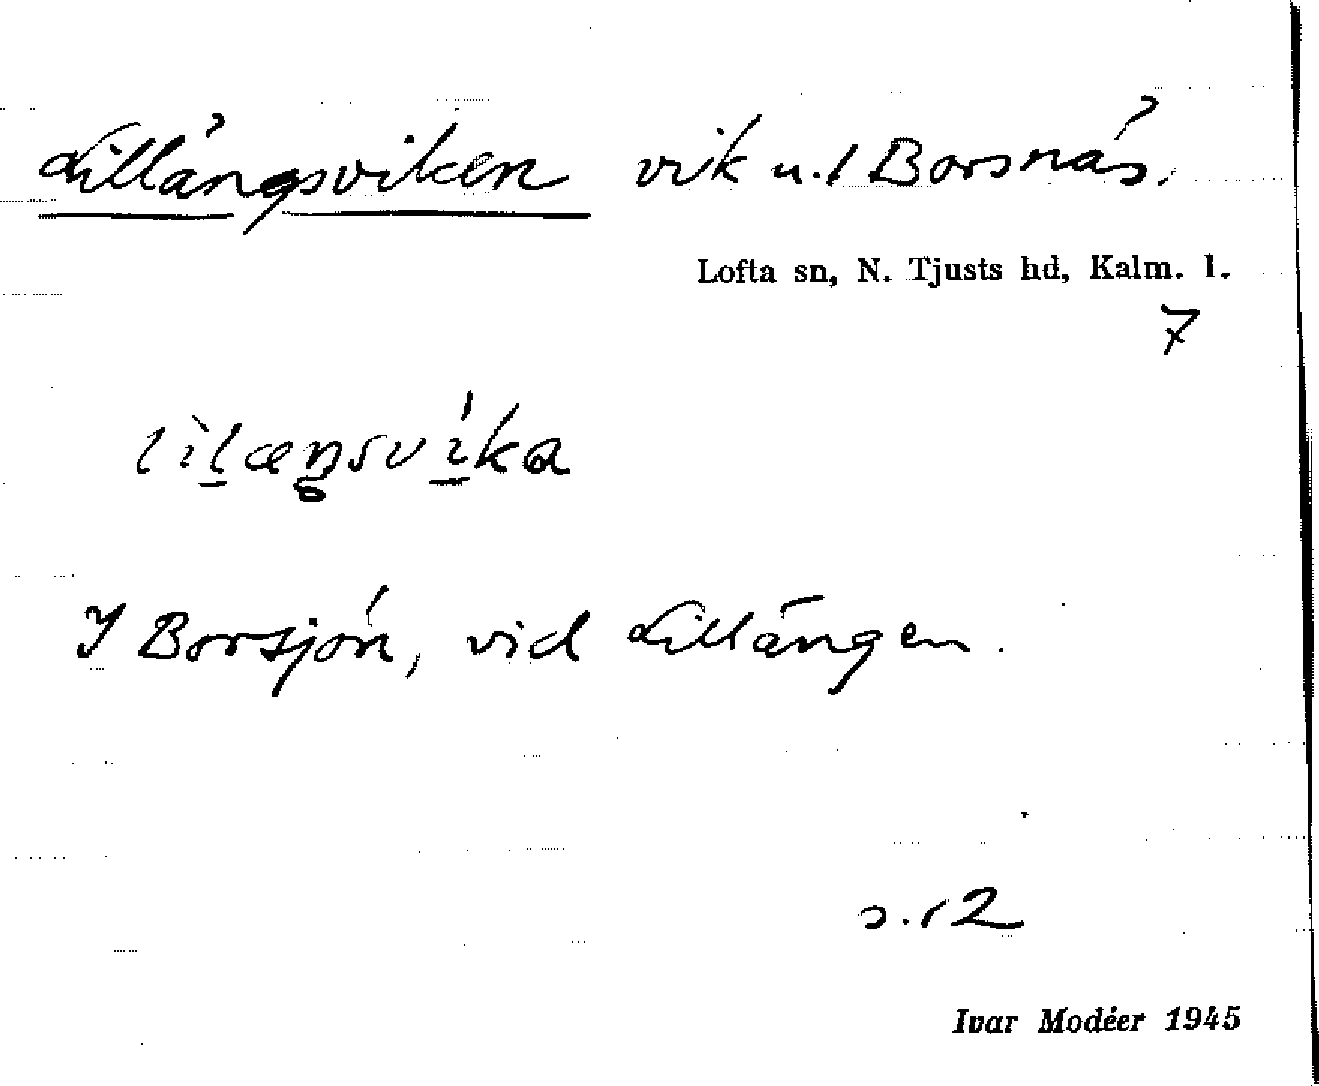 Lillängsviken vik u. / Borsnäs.
Lofta sn, N. Tjusts hd, Kalm. l.
7
lìlæŋsvíka
I Borsjön, vid Lillängen.
s. 12
Ivar Modéer 1945